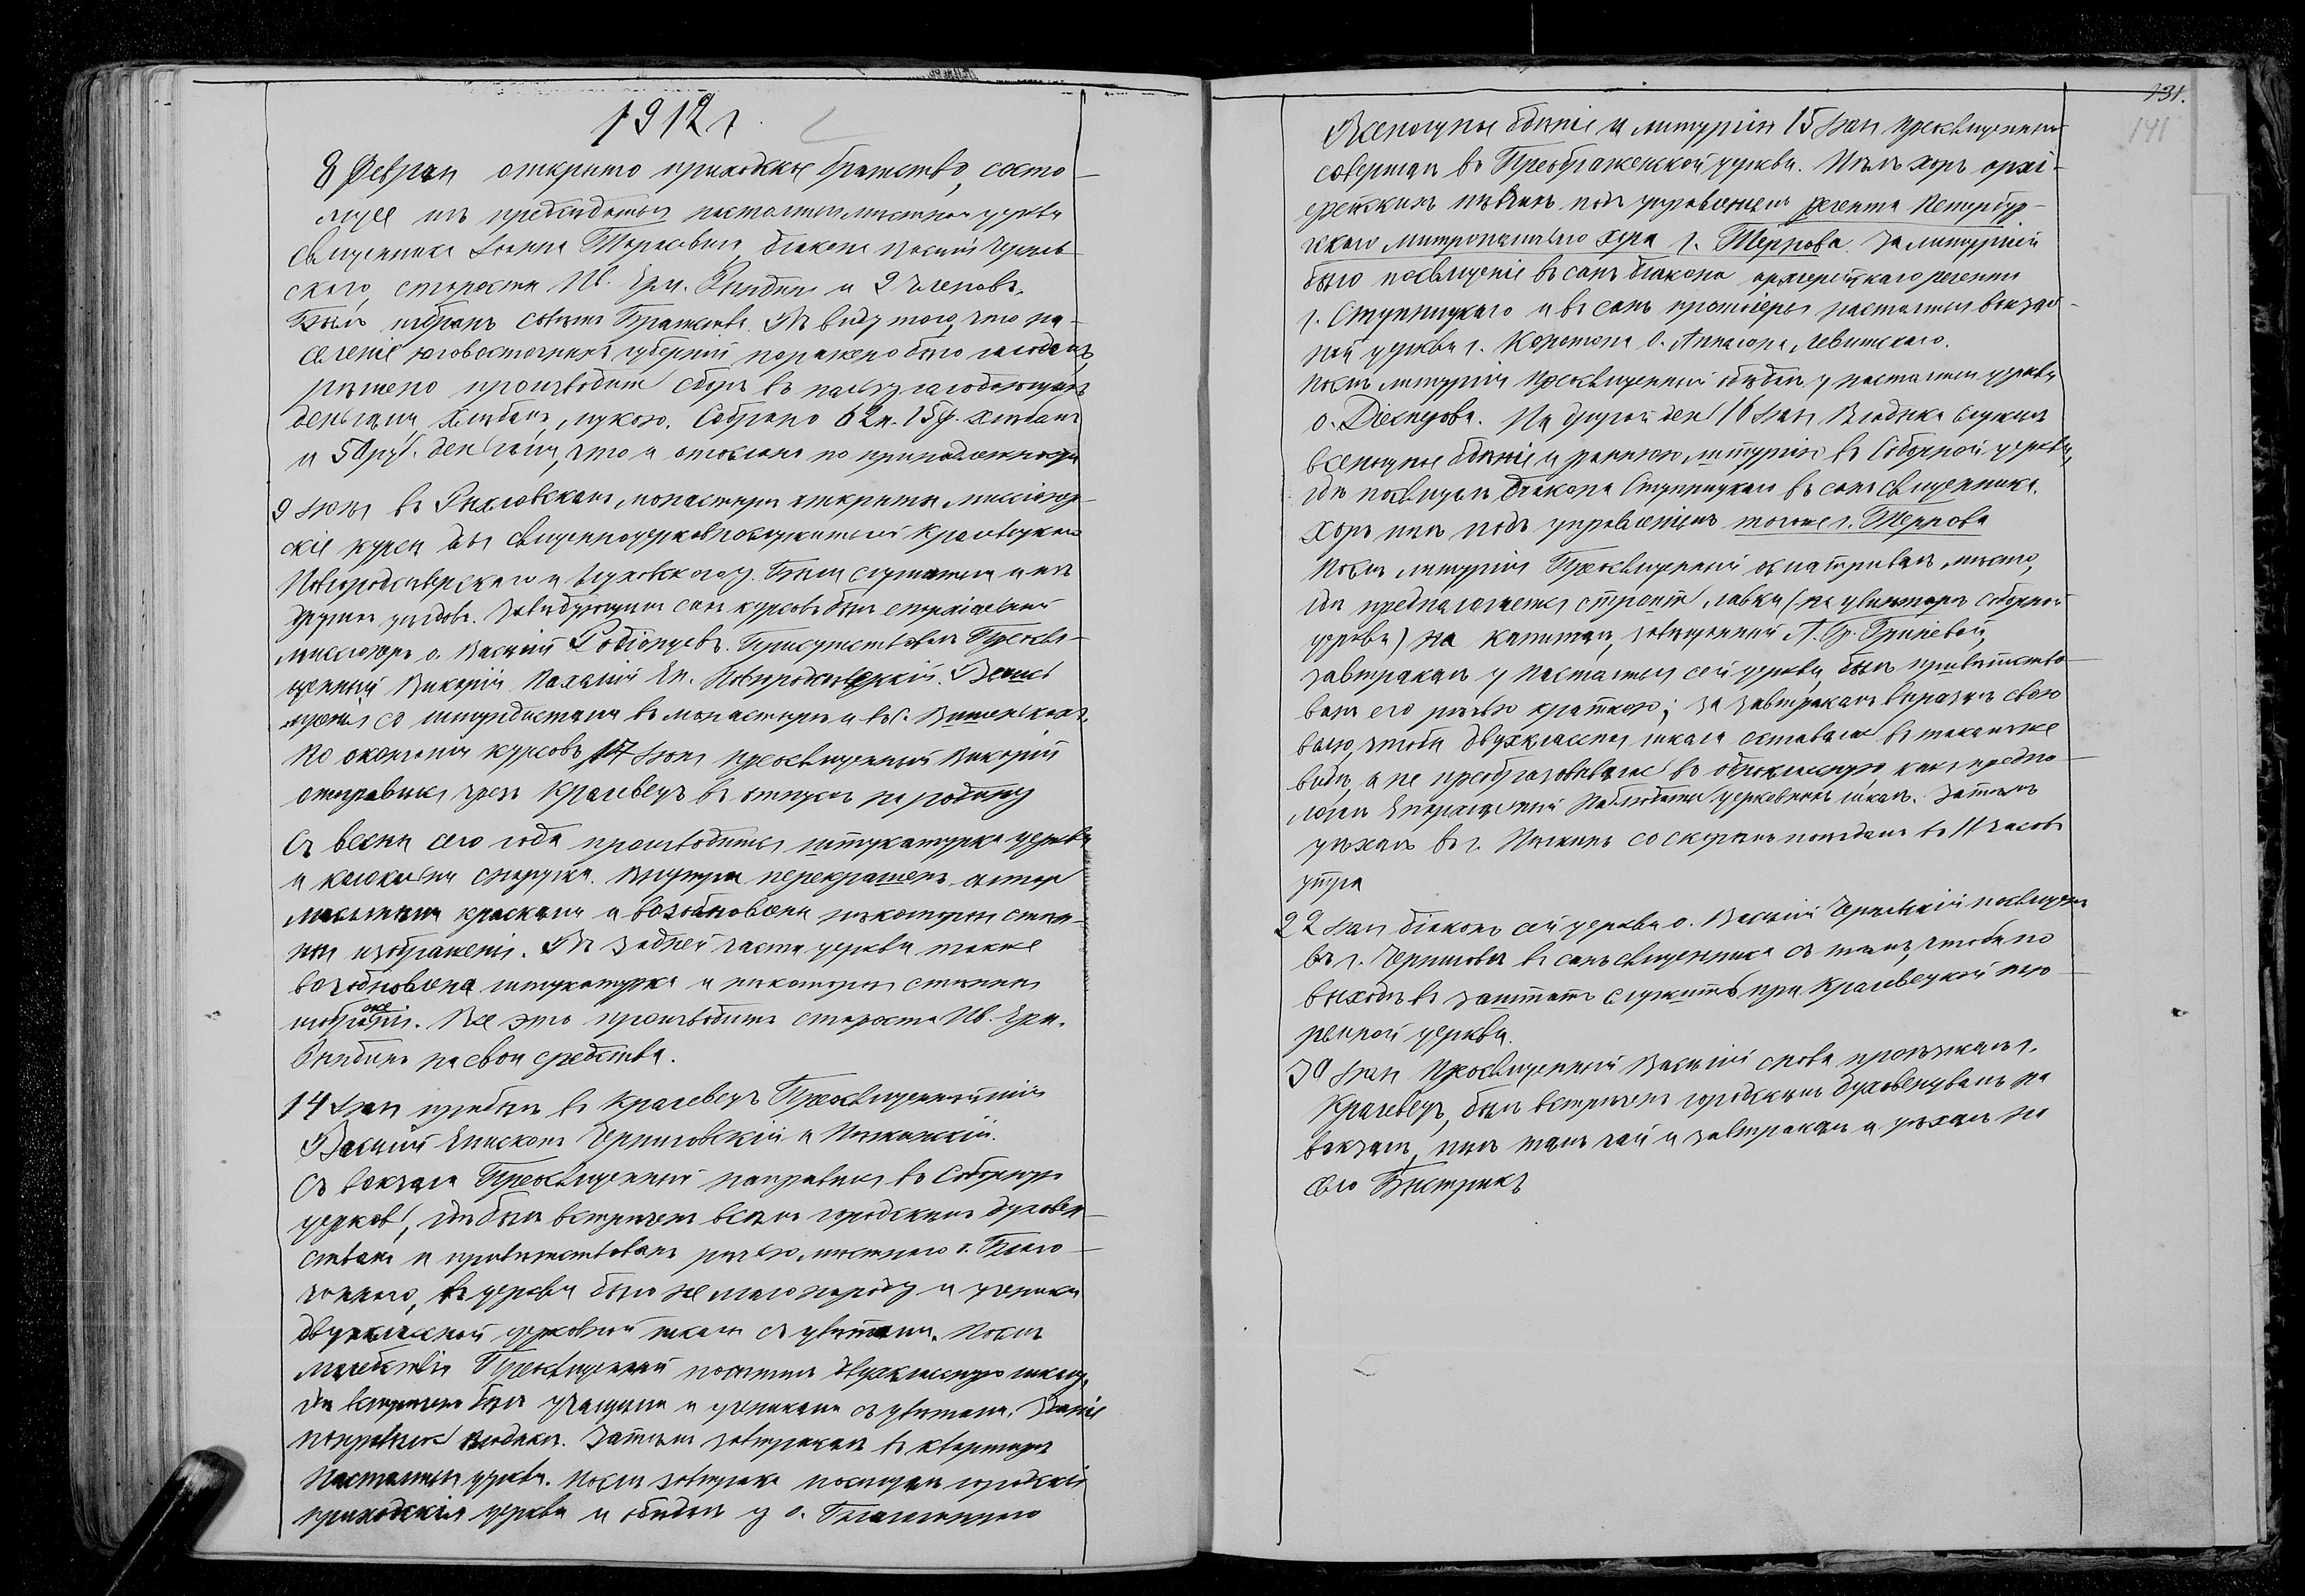 1912 г.
8 Феврал открыто приходское братство, состо-
ящее изъ председателя настоятеля местной церкви
священника Іоанна Тарасевича, діакона Василія Черняв-
скаго, старосты Ив. Гри. и 9 членовъ.
Былъ избранъ советъ Братства. Въ виду того, что на-
селеніе юговосточныхъ губерній поражено было голодомъ,
решено производить сборъ въ пользу голодающихъ
деньгами, хлебомъ, мукою. Собрано 62 п. 15 ф. хлебомъ
и 50 руб. деньгами, что и отослано по принадлежности
9 Іюня въ Рыхловскомъ монастыре открыты миссіонер-
скіе курсы для священноцерковнослужителей Кролевецкаго
Новгородсеверскаго и Глуховского у. Были слушатели и изъ
другихъ уездовъ. Заведующимъ сихъ курсовъ былъ епархіальный
миссіонеръ о. Василій Родіонцевъ. Присутствовалъ Преосвя-
щенный Викарій Пахомій Еп. Новгородсеверскій. Велись
со штундистами въ монастыре и въ с.
По окончаніи курсовъ 17 Іюня преосвященный Викарій
отправился чрезъ Кролевецъ въ отпускъ на родину
Съ весны сего года производится штукатурка церкви
и колокольни снаружи. Внутри перекрашенъ алтарь
масляными красками и возобновлены некоторыя стен-
ныя изображенія. Въ задней части церкви также
возобновлена штукатурка и некоторыя стенныя
изображенія. Все это производитъ староста Ив. Гри.
на свои средства.
14 Іюля прибылъ въ Кролевецъ Преосвященнейшій
Василій Епископъ Черниговскій и Нежинскій.
Съ вокзала Преосвященный направился въ Соборную
церковь, где былъ встреченъ всемъ городскимъ духовен-
ствомъ и приветствованъ речью местнаго о. Благо-
чиннаго, въ церкви было не мало народу и ученики
двухклассной церковной школы съ цветами. После
молебствія Преосвященный посетилъ двухклассную школу,
где встреченъ былъ учащими и учениками съ цветами. Зданіе
понравилось Владыке. Затемъ завтракалъ въ квартире
Настоятеля церкви. После завтрака посещалъ городскія
приходскія церкви и обедалъ у о. Благочиннаго
131.
141
Всенощное бденіе и литургію 15 Іюля преосвященный
совершалъ въ Преображенской церкви. Пелъ хоръ архі-
ерейскихъ певчихъ подъ управленіемъ регента Петербур-
гскаго митрополичьяго хора г. Тернова. За литургіей
было посвященіе въ санъ діакона архіерейскаго регента
г. Ступницкаго и въ санъ протоіерея настоятеля вокзаль-
ной церкви г. Коротопа о. Левитскаго.
После литургіи Преосвященный обедалъ у настоятеля церкви
о. Діесперова. На другой день 16 Іюля Владыка служилъ
всенощное бденіе и раннюю литургію въ Соборной церкви,
где посвящалъ діакона Ступницкаго въ санъ священника.
Хоръ пелъ подъ управленіемъ тогоже г. Тернова
После литургіи Преосвященный осматривалъ место,
где предполагается строить лавки (на цвинтаре соборной
церкви) на капиталъ, завещанный А. Гр. Гриневой,
завтракалъ у Настоятеля сей церкви, былъ приветство-
ванъ его речью краткою; за завтракомъ выразилъ свою
волю, чтобы двухклассная школа оставалась въ такомъ же
виде, а не преобразовывалась въ одноклассную, какъ предпо-
лагалъ Епархіальный Наблюдатель церковныхъ школъ. Затемъ
уехалъ въ г. Нежинъ со скорымъ поездомъ въ 11 часовъ
утра
22 Іюля діаконъ сей церкви о. Василій Чернявскій посвященъ
въ г. Чернигове въ санъ священника съ темъ, чтобы по
выходе въ заштатъ служить при Кролевецкой тю-
ремной церкви.
30 Іюля Преосвященный Василій снова проезжалъ г.
Кролевецъ, былъ встреченъ городскимъ духовенствомъ на
вокзале, пилъ тамъ чай и завтракалъ и уехалъ на
село Быстрикъ